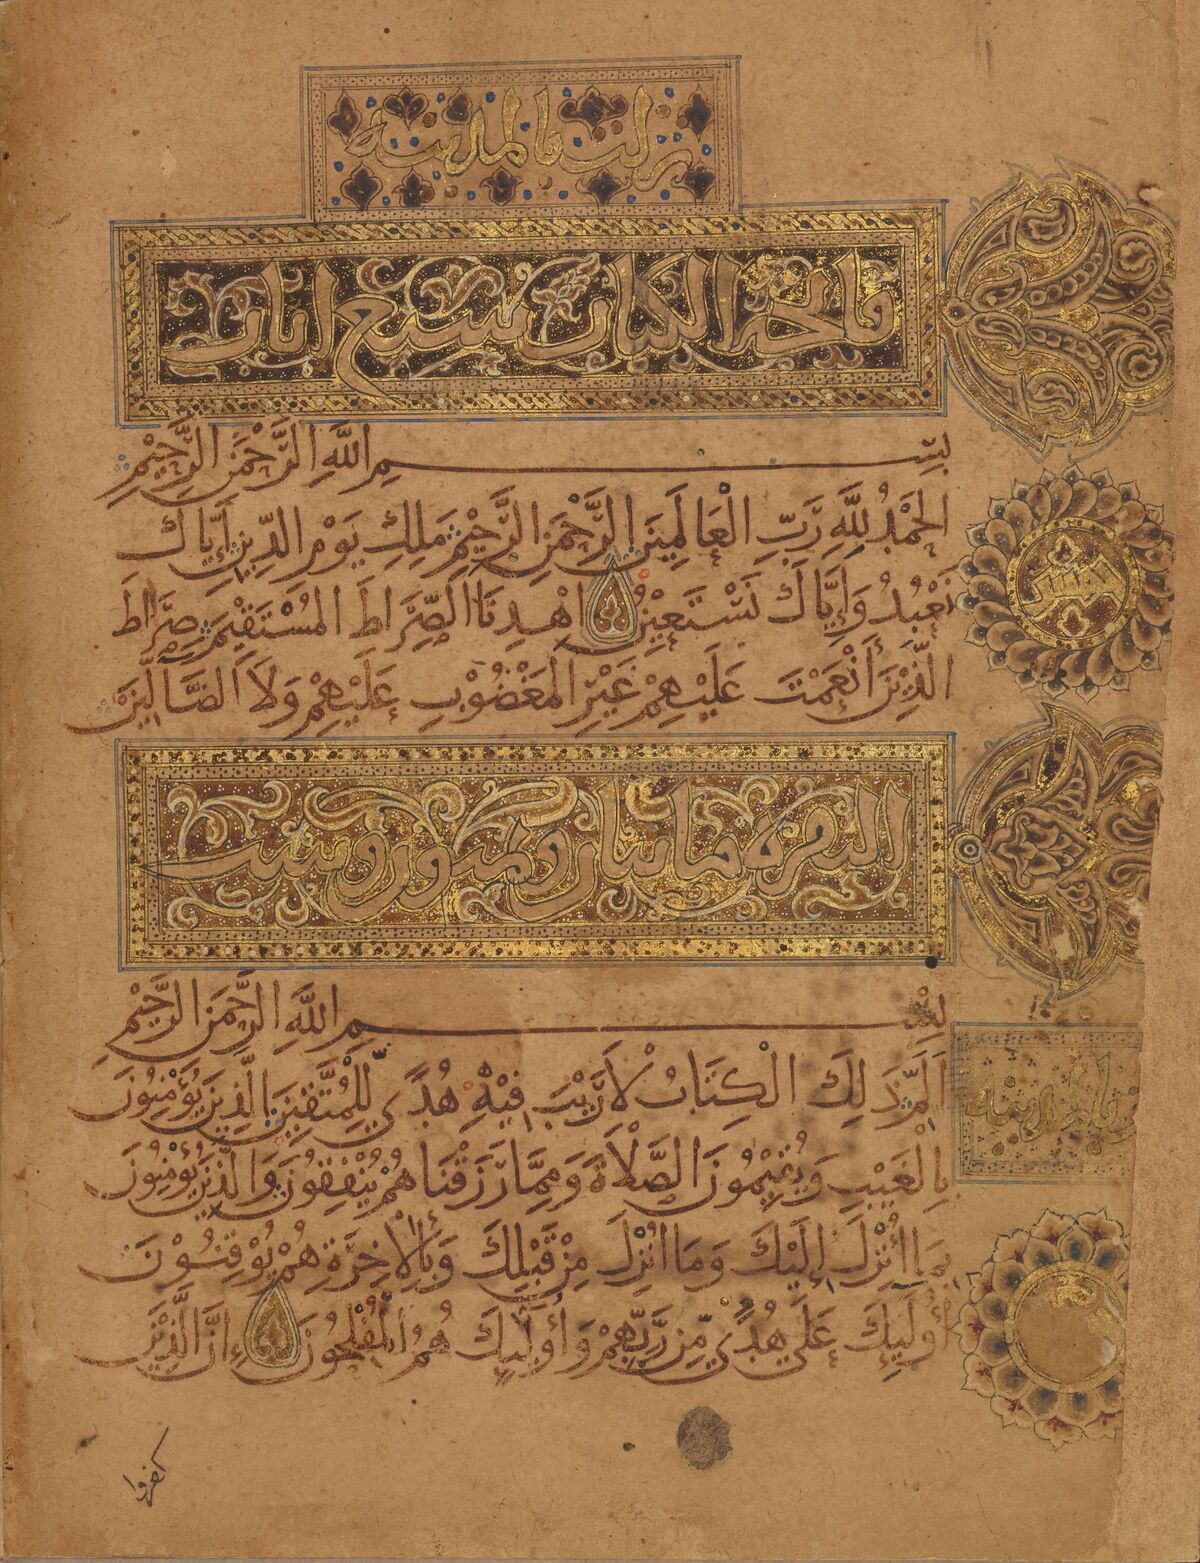 نزلت بالمدينة
فاتحة الكتاب سبع ايات
بِسْمِ اللَّهِ الرَّحْمَنِ الرَّحِيْمِ
الحَمْدُ لِلَّهِ رَبِّ الْعَالَمِيْنَ الرَّحْمَنِ الرَّحِيْمِ مَلِكِ يَوْمِ الدِّيْنِ إِيَّاكَ
نَعْبُدُ وَإِيَّاكَ نَسْتَعِيْنُ اهْدِنَا الصِّرَاطَ المُسْتَقِيْمَ صِرَاطَ
الَّذِيْنَ أَنْعَمْتَ عَلَيْهِمْ غَيْرِ المَغْضُوْبِ عَلَيْهِمْ وَلَا الضَّالِّيْنَ
البقرة مايتان وثمنون وست
بِسْمِ اللَّهِ الرَّحْمَنِ الرَّحِيْمِ
الَمّ ذَلِكَ الْكِتَابُ لَا رَيْبَ فِيْهِ هُدًي لِلْمُتَّقِيْنَ الَّذِيْنَ يُؤْمِنُوْنَ
بِالْغَيْبِ وَيُقِيْمُوْنَ الصَّلَاةَ وَمِمَّا رَزَقْنَاهُمْ يُنْفِقُوْنَ وَالَّذِيْنَ يُؤْمِنُوْنَ
بِمَا أُنْزِلَ إِلَيْكَ وَمَا أُنْزِلَ مِنْ قَبْلِكَ وَبِالْاخِرَةِ هُمْ يُوْقِنُوْنَ
أُوْلَئِكَ عَلَي هُدًي مِنْ رَبِّهِمْ وَأُوْلَئِكَ هُمُ الْمُفْلِحُوْنَ إِنَّ الَّذِيْنَ
كفروا